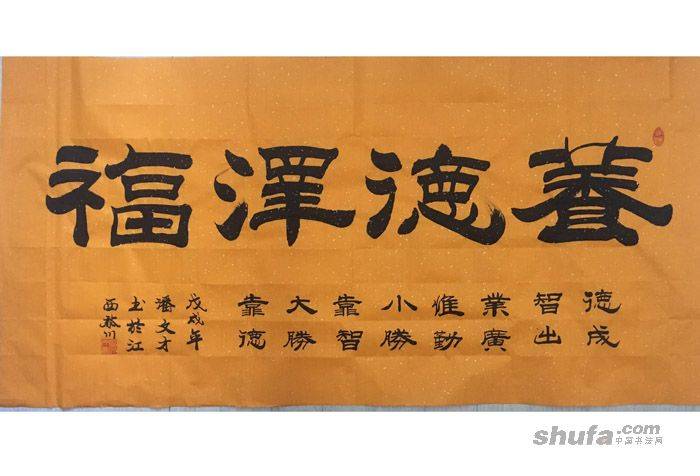 養徳澤福
徳成
智出
業廣
惟勤
小勝
靠智
大勝
靠德
戊戌年
潘文才
书於江
西川
shufa.com
中国书法网